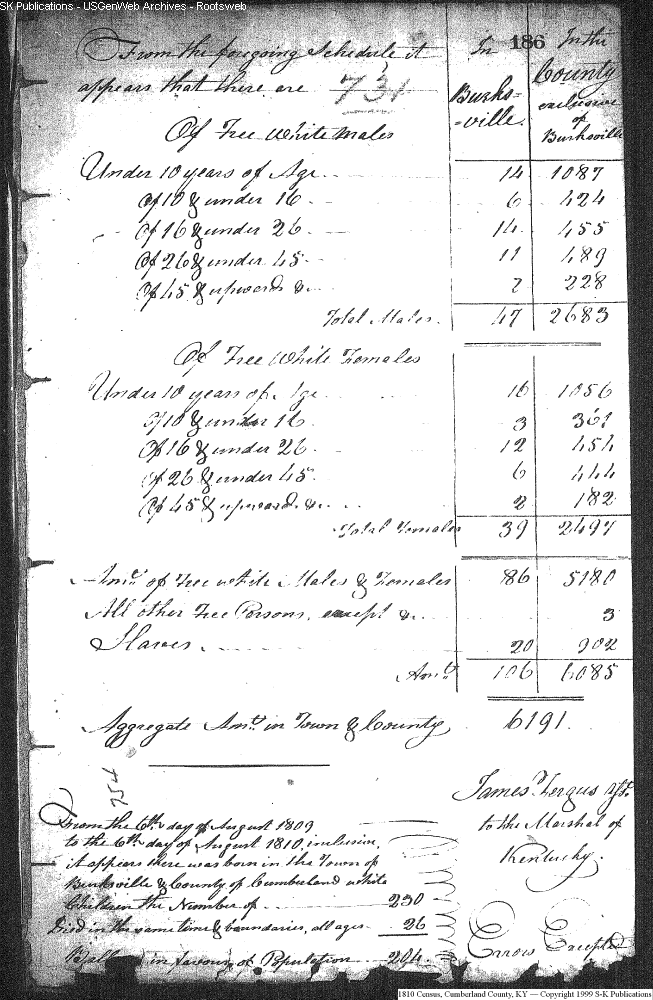 SK Publications - USGenWeb Archives - Rootsweb
186
From the foregoing Schedule it In In the
appears that there are 731 Burks- County
-ville. exclusive
of
Of Free White Males Burksville
Under 10 years of Age 14 1087
Of 10 & under 16 6 424
Of 16 & under 26 14 455
Of 26 & under 45 11 489
Of 45 & upwards &c. 2 228
Total Males. 47 2683
Of Free White Females
Under 10 years of Age 16 1056
Of 10 & under 16 3 361
Of 16 & under 26 12 454
Of 26 & under 45 6 444
Of 45 & upward. &c. 2 182
Total Females 39 2497
Amt. of Free white Males & Females 86 5180
All other Free Persons, except &c. 3
Slaves 20 902
Amt. 106 6085
Aggregate Amt. in Town & County 6191.
754
James Fergus asst.
to the Marshal of
Kentucky.
From the 6th day of August 1809
to the 6th day of August 1810, inclusive,
it appears there was born in the Town of
Burksville & County of Cumberland white
Children the Number of 230
Died in the same time & boundaries, all ages 26
Ballance in favour of Population 204
Errors Excepted
1810 Census, Cumberland County, KY — Copyright 1999 S-K Publications